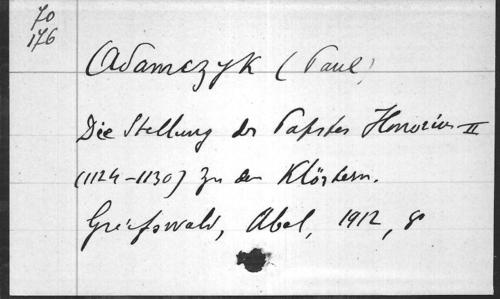 70
176
Adamczyk (Paul)
Die Stellung des Papstes Honorius II
(1124-1130) zu den Klöstern.
Greifswald, Abel, 1912, 8°